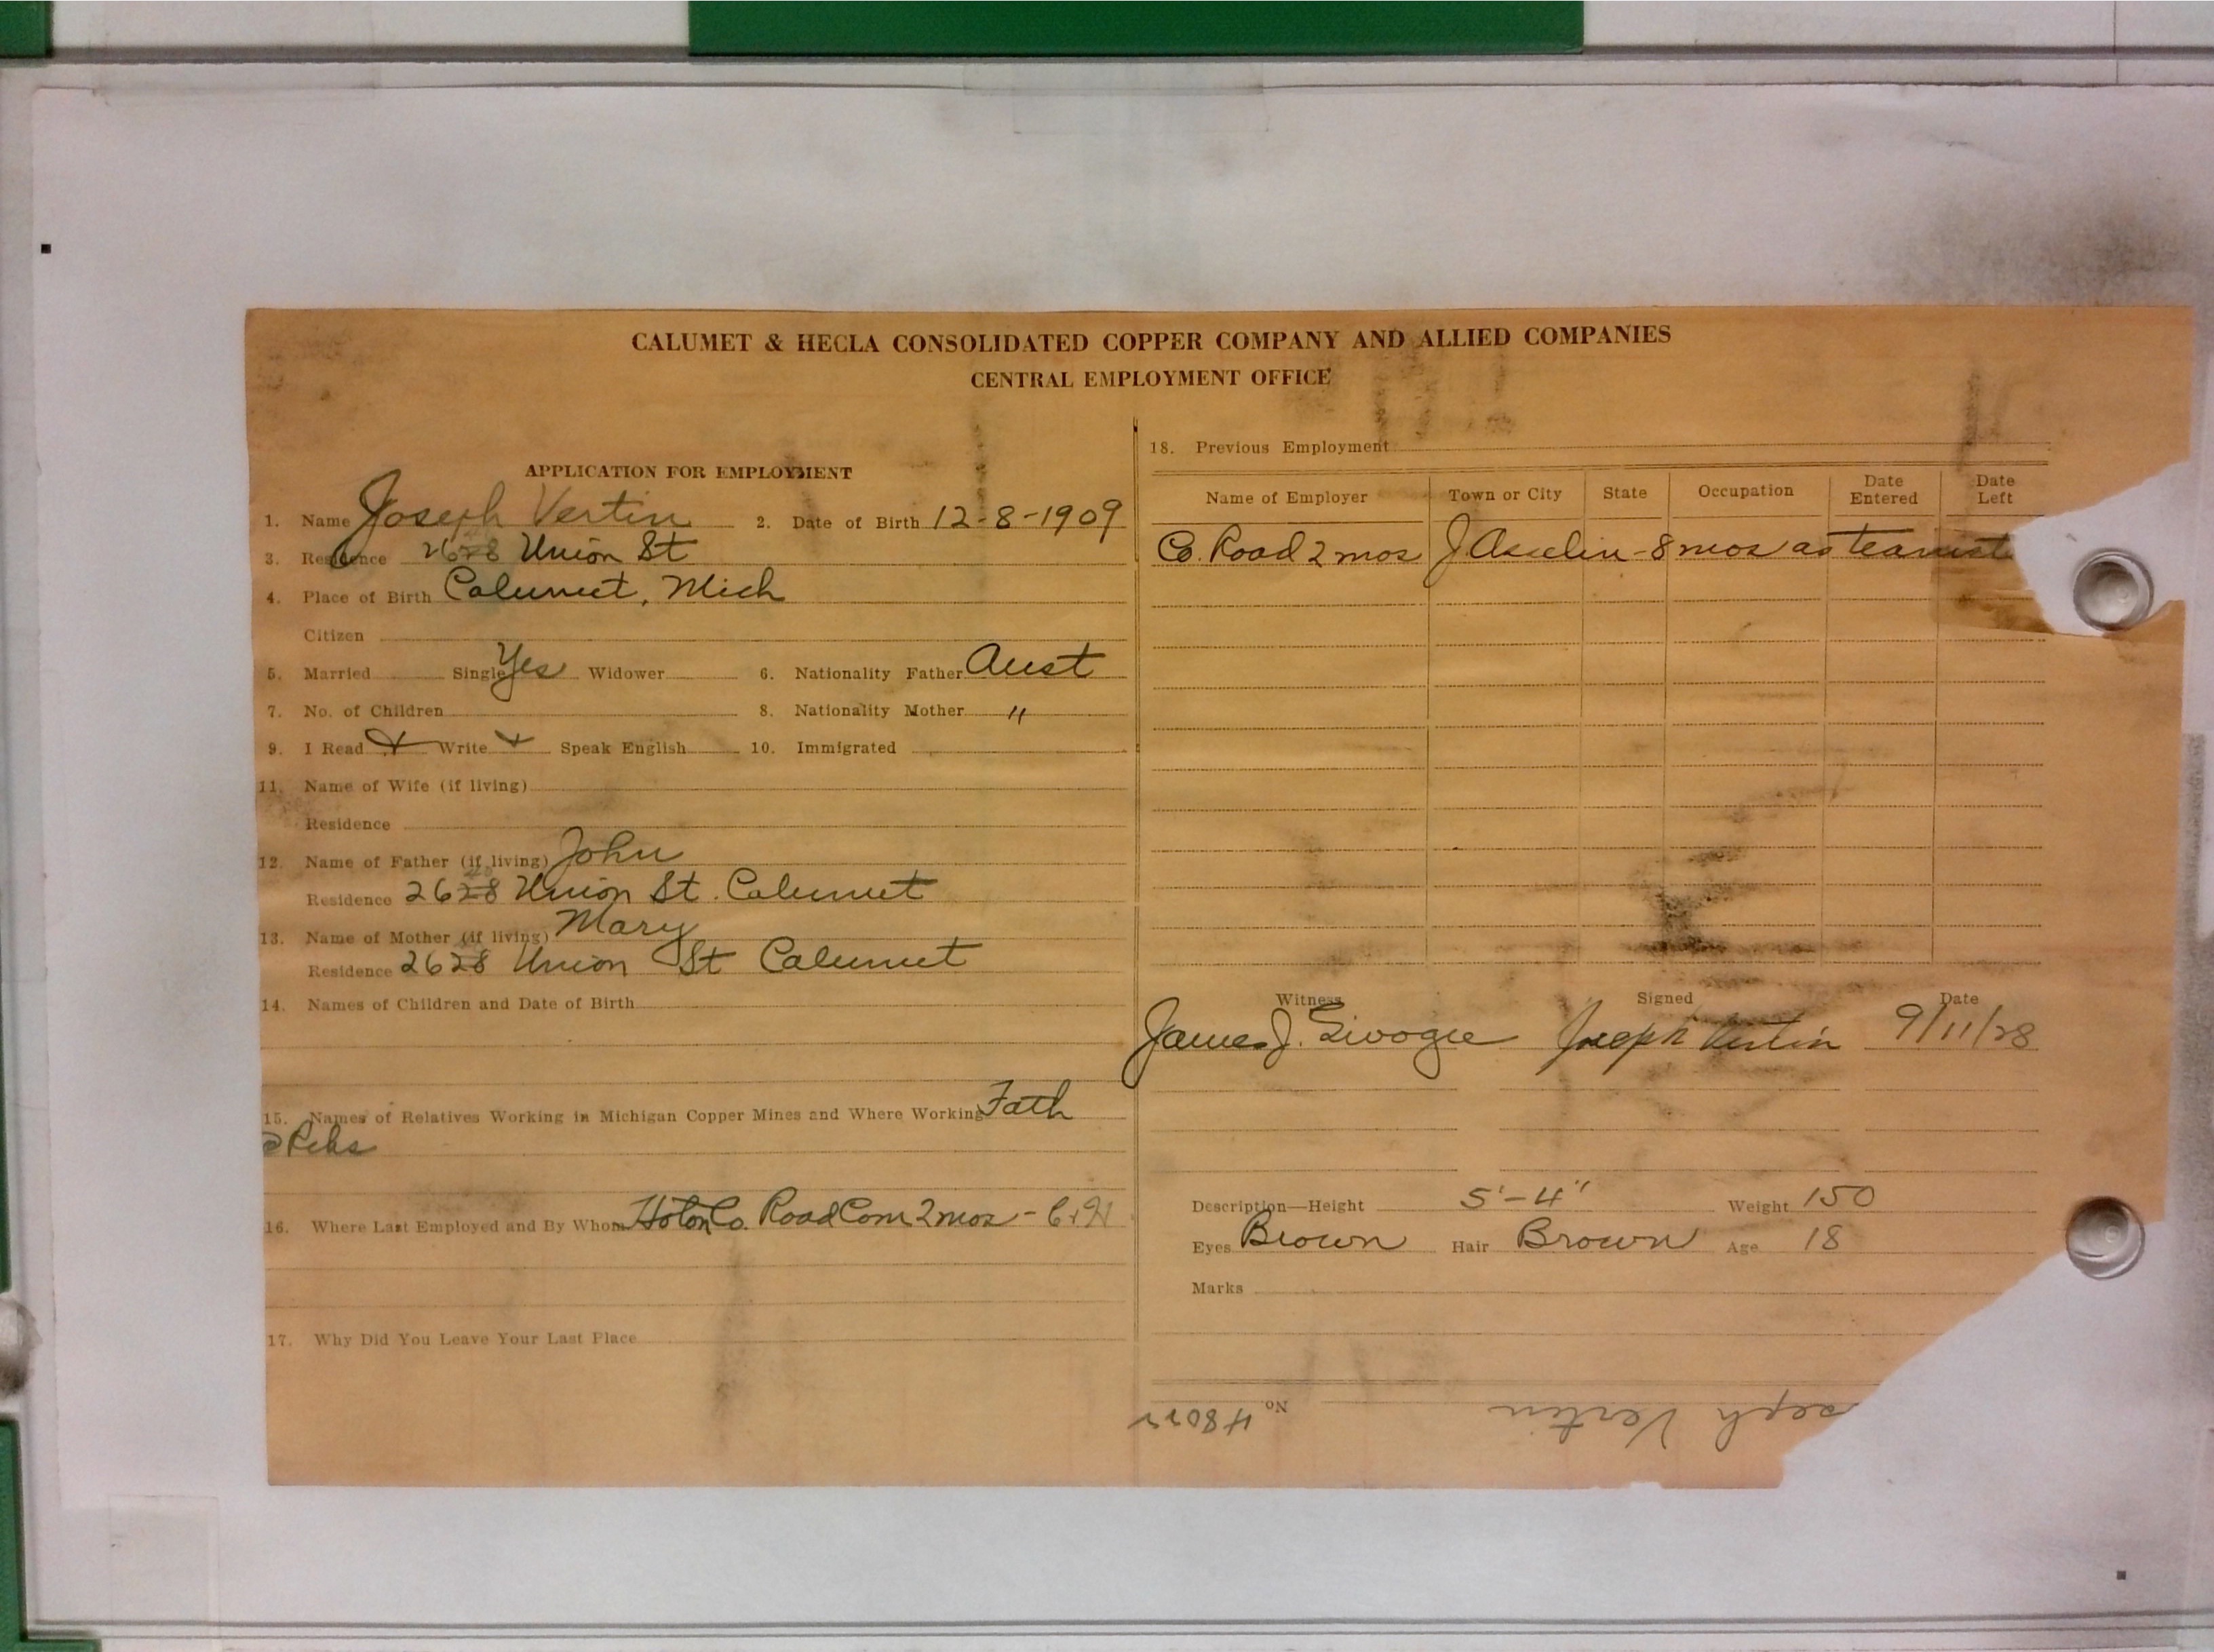 CALUMET & HECLA CONSOLIDATED COPPER COMPANY AND ALLIED COMPANIES
CENTRAL EMPLOYMENT OFFICE
APPLICATION FOR EMPLOYMENT
1. Name Joseph Vertin 2. Date of Birth 12-8-1909
3. Residence 2628 Union St
4. Place of Birth Calumet, Mich
Citizen
5. Married Single Yes Widower 6. Nationality Father Aust
7. No. of Children 8. Nationality Mother "
9. I Read Write Speak English 10. Immigrated
11. Name of Wife (if living)
Residence
12. Name of Father (if living) John
Residence 2628 Union St. Calumet
13. Name of Mother (if living) Mary
Residence 2628 Union St Calumet
14. Names of Children and Date of Birth
15. Names of Relatives Working in Michigan Copper Mines and Where Working Fath
16. Where Last Employed and By Whom Hoton Co. Road Com 2 mos - C+H
17. Why Did You Leave Your Last Place
18. Previous Employment
Name of Employer Town or City State Occupation Date Entered Date Left
Co. Road 2 mos J Asselin - 8 mos as teamst
Witness Signed Date
James J. Joseph Vertin 9/11/28
Description—Height 5'-4" Weight 150
Eyes Brown Hair Brown Age 18
Marks
No. 48022
seph Vertin